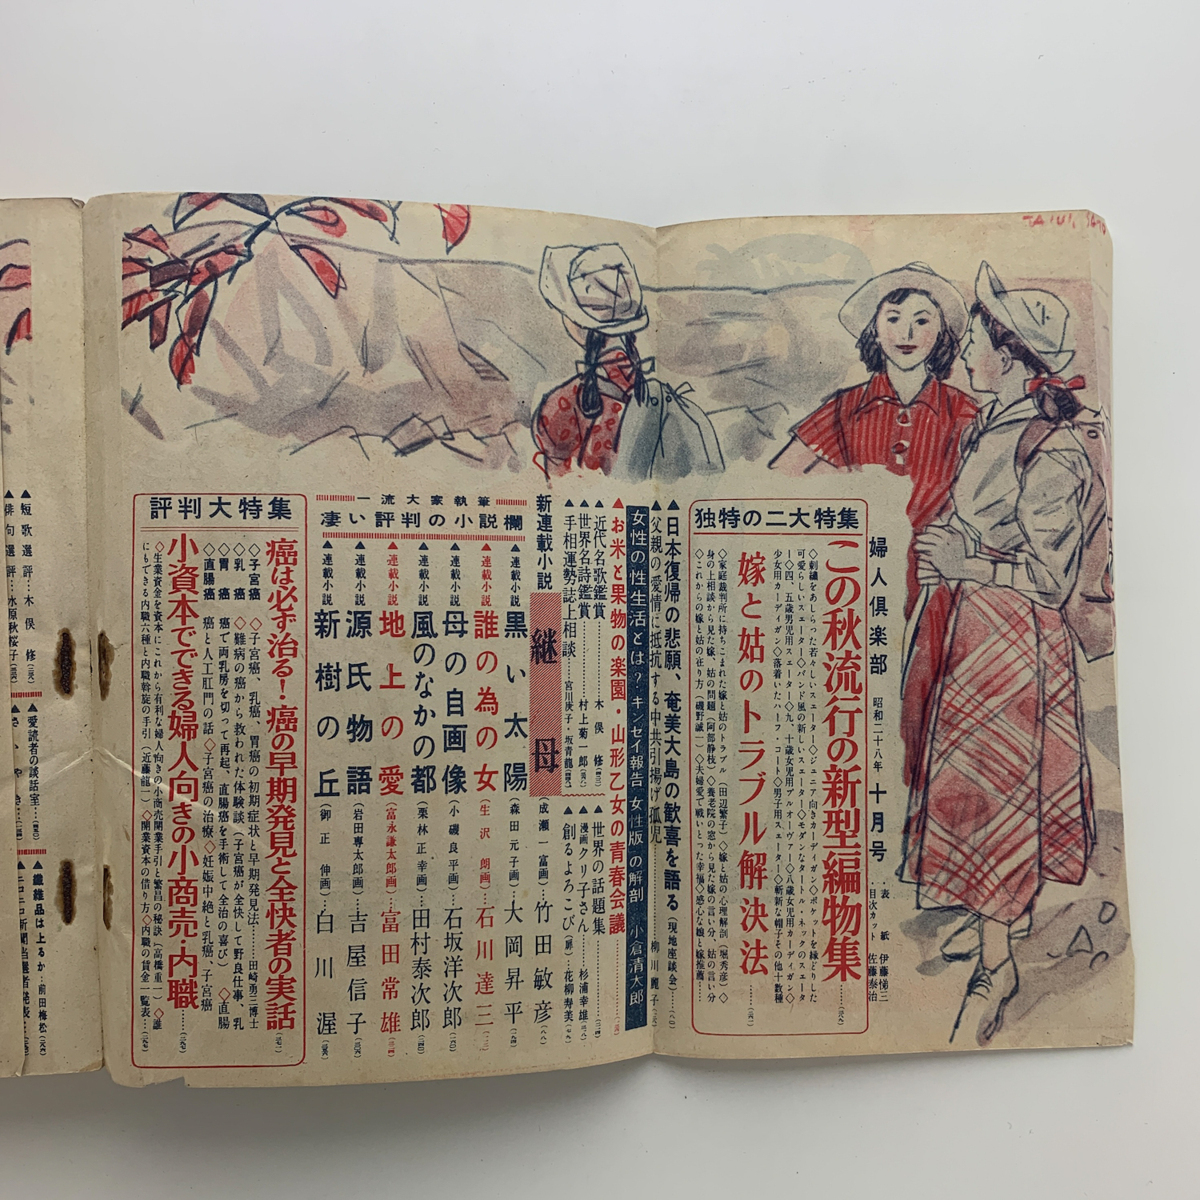 婦人倶楽部 昭和二十八年 十月号
・表紙 伊藤悌三
・目次カット 佐藤泰治
独特の二大特集
この秋流行の新型編物集
◇刺繍をあしらった若々しいスエーター◇ジュニア向きカーディガン◇ポケットを縁どりした
可愛らしいスエーター◇バンド風の新しいスエーター◇モダンなタートル・ネックのスエータ
ー◇四、五歳男児用スエーター◇九、十歳女児用プルオーヴァー◇八歳女児用カーディガン◇
少女用カーディガン◇落着いたハーフ・コート◇男子用スエーター◇新しい帽子その他十数種
嫁と姑のトラブル解決法
◇家庭裁判所に持ちこまれた嫁と姑のトラブル(田辺繁子)◇嫁と姑の心理解剖(堀秀彦)◇
身の上相談から見た嫁、姑の問題(阿部静枝)◇養老院の窓から見た嫁の言い分 姑の言い分
◇これからの嫁と姑の在り方(磯野誠一)◇夫婦愛で戦いとった幸福◇感心な娘と嫁推薦
▲日本復帰の悲願、奄美大島の歓喜を語る(現地座談会)
▲父親の愛情に抵抗する中共引揚げ孤児……柳川麗子
女性の性生活とは? キンゼイ報告 女性版の解剖 小倉清太郎
▲お米と果物の楽園・山形乙女の青春会議
▲近代名歌鑑賞……木俣修
▲世界名詩鑑賞……村上菊一郎
▲手相運勢誌上相談……宮川庚子・坂青龍
▲世界の話題集
▲漫画クリ子さん……杉浦幸雄
▲創るよろこび(扉)…花柳寿美
新連載小説 継母(成瀬一富画)…竹田敏彦
一流大家執筆
凄い評判の小説欄
▲連載小説 黒い太陽(森田元子画)…大岡昇平
▲連載小説 誰の為の女(生沢朗画)…石川達三
▲連載小説 母の自画像(小磯良平画)…石坂洋次郎
▲連載小説 風のなかの都(栗林正幸画)…田村泰次郎
▲連載小説 地上の愛(富永謙太郎画)…富田常雄
▲連載小説 源氏物語(岩田専太郎画)…吉屋信子
▲連載小説 新樹の丘(御正伸画)…白川渥
評判大特集
癌は必ず治る!癌の早期発見と全快者の実話
◇子宮癌 ◇子宮癌、乳癌、胃癌の初期症状と早期発見法……田崎勇三博士
◇乳癌 ◇難病の癌から救われた体験談(子宮癌が全快して野良仕事、乳
◇胃癌 癌で両乳房を切って再起、直腸癌を手術して全治の喜び)◇直腸
◇直腸癌 癌と人工肛門の話◇子宮癌の治療◇妊娠中絶と乳癌、子宮癌
小資本でできる婦人向きの小商売・内職
◇生業資金を資本にこれから有利な婦人向きの小商売開業手引と繁昌の秘訣(高橋重一)◇誰
にもできる内職六種と内職斡旋の手引(近藤龍一)◇開業資本の借り方◇内職の賃金一覧表
▲短歌選評…木俣修
俳句選評…水原秋桜子
▲愛読者の談話室
▲繊維品は上るか…前田梅松